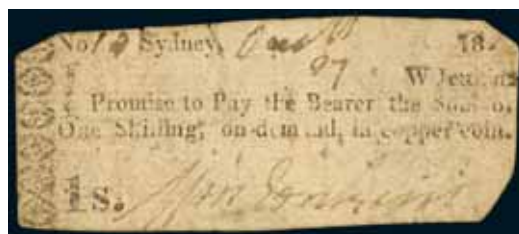 No 12 Sydney, 18
27
W Jenkins
Promise to Pay the Bearer the Sum of
One Shilling, on demand, in copper coin.
1S. Jenkins